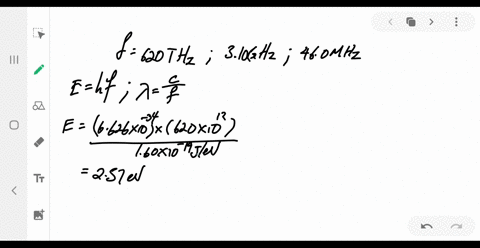 f = 620 THz ; 3.10 GHz ; 46.0 MHz
E = hf ; λ = c/f
E = (6.626×10^-34)×(620×10^12) / 1.60×10^-19 J/eV
= 2.57 eV
Tt